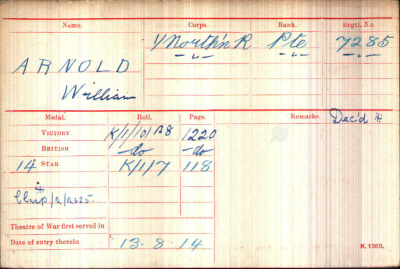 Name. Corps. Rank. Regtl. No.
ARNOLD
William
North'n R Pte 7285
-"- -"- -"-
Medal. Roll. Page. Remarks. Dec'd
VICTORY K/1/101B8 1220
BRITISH -do- -do-
14 STAR K/1/7 118
Clasp/2/2625.
Theatre of War first served in
Date of entry therein 13-8-14
K. 1380.